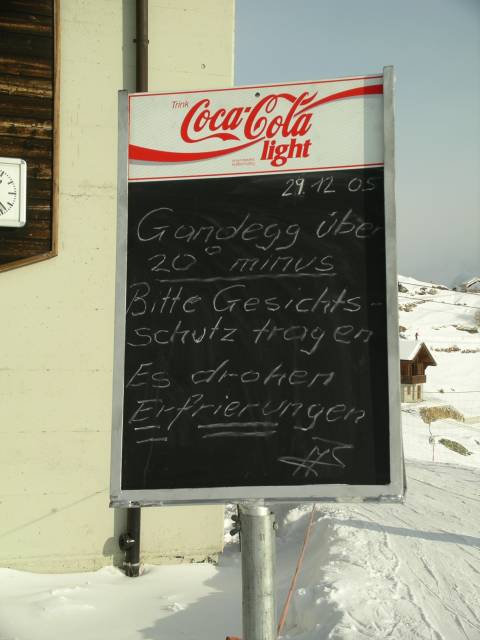 Trink
Coca-Cola
light
29.12 05
Gandegg über
20° minus
Bitte Gesichts-
schutz tragen
Es drohen
Erfrierungen